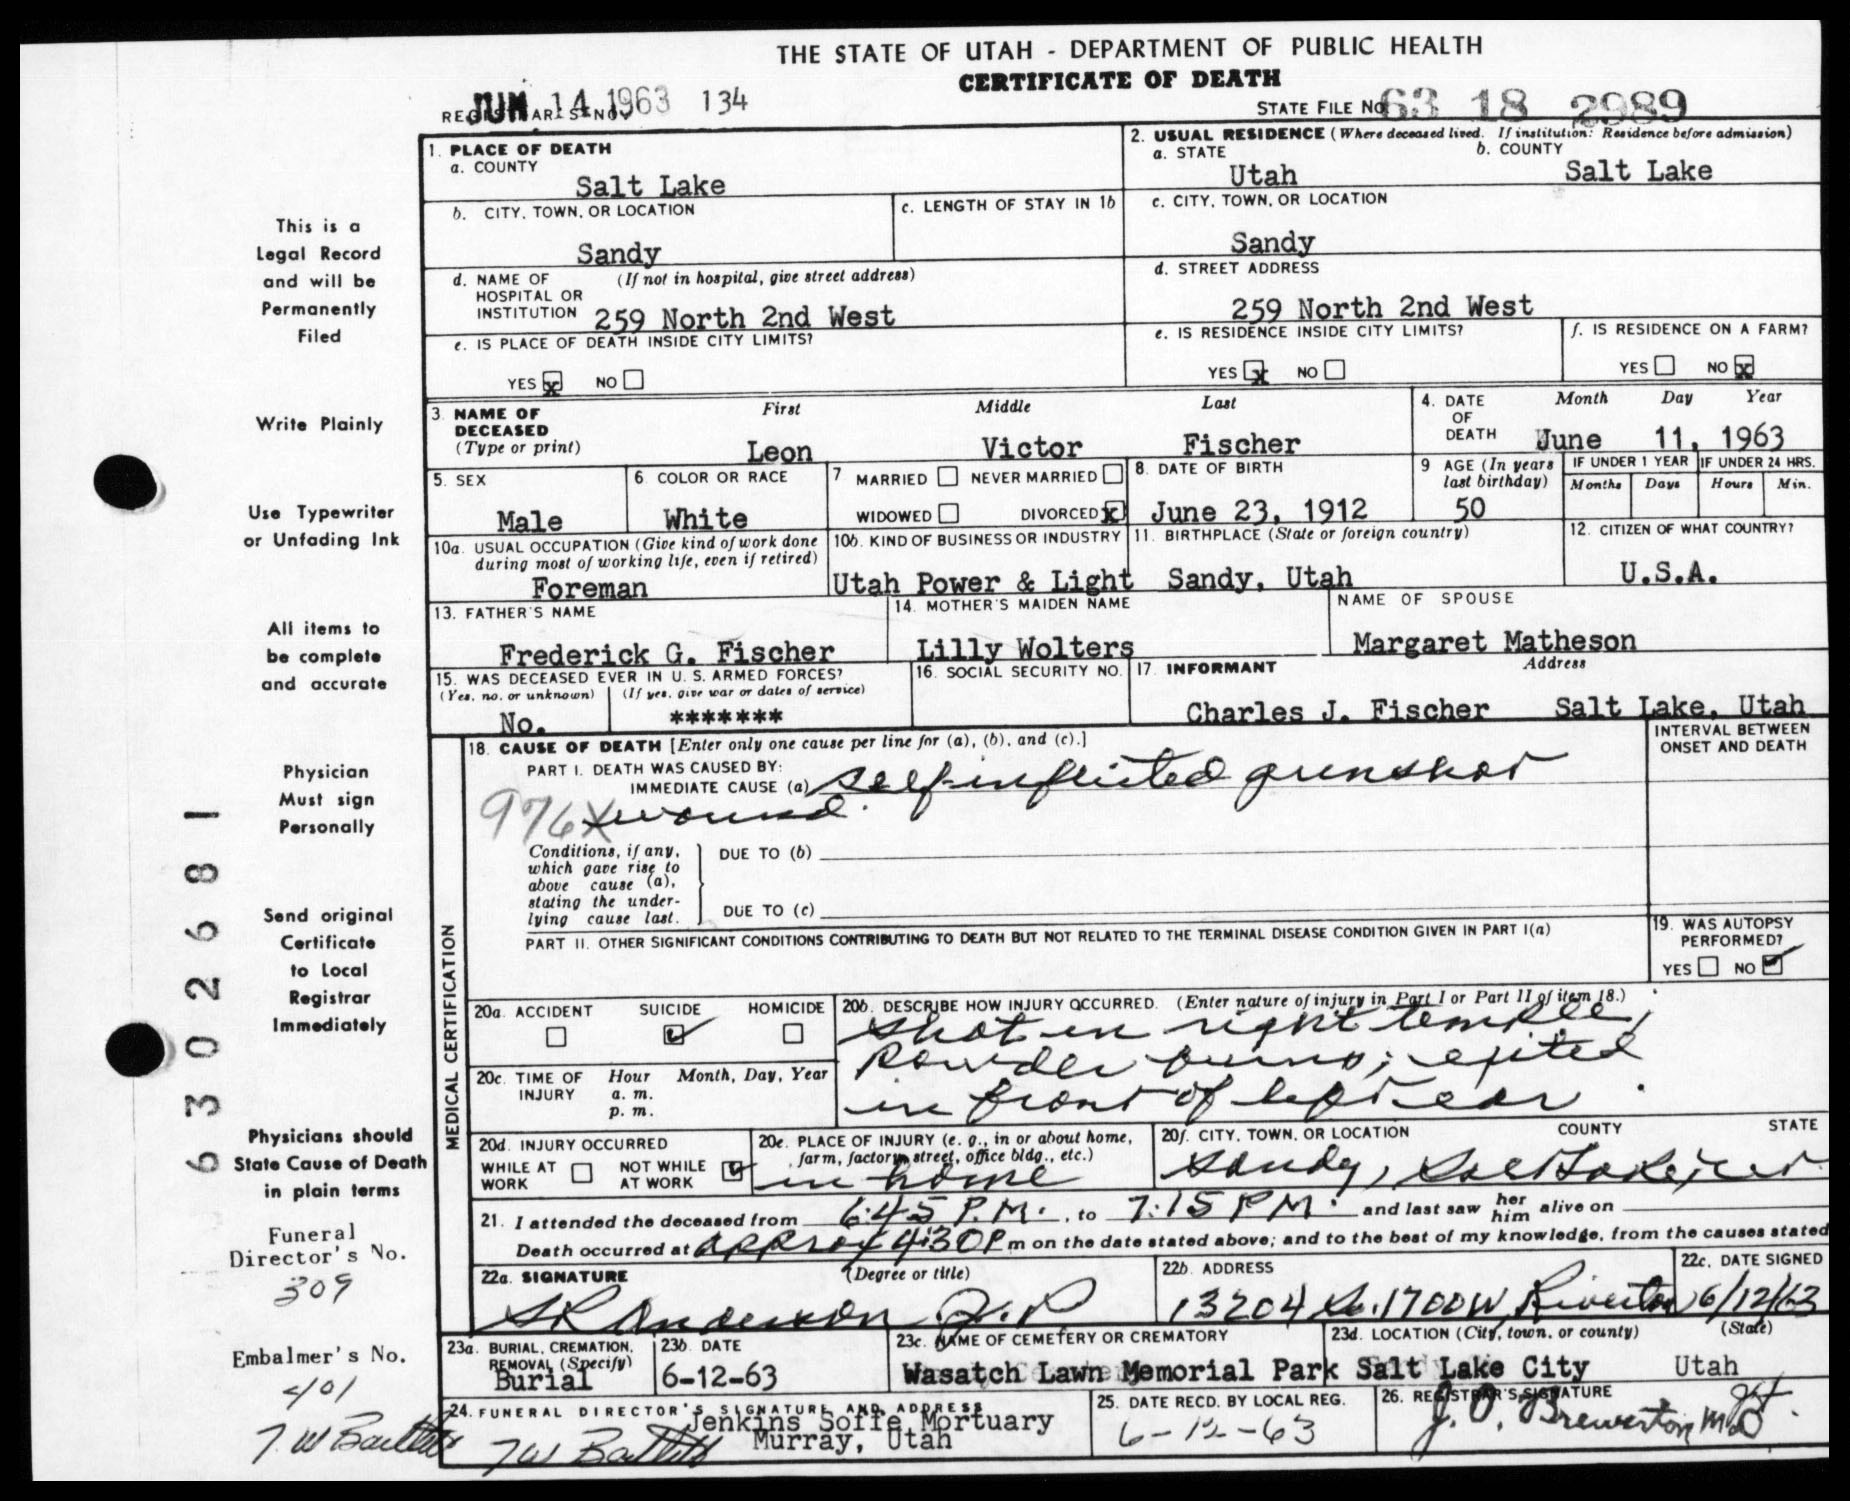 THE STATE OF UTAH - DEPARTMENT OF PUBLIC HEALTH
CERTIFICATE OF DEATH
JUN 14 1963 134
REGISTRAR'S NO.
STATE FILE NO. 63 18 2989
1. PLACE OF DEATH
a. COUNTY
Salt Lake
2. USUAL RESIDENCE (Where deceased lived. If institution: Residence before admission)
a. STATE
Utah
b. COUNTY
Salt Lake
b. CITY, TOWN, OR LOCATION
Sandy
c. LENGTH OF STAY IN 1b
c. CITY, TOWN, OR LOCATION
Sandy
d. NAME OF HOSPITAL OR INSTITUTION
(If not in hospital, give street address)
259 North 2nd West
d. STREET ADDRESS
259 North 2nd West
e. IS PLACE OF DEATH INSIDE CITY LIMITS?
YES x NO
e. IS RESIDENCE INSIDE CITY LIMITS?
YES x NO
f. IS RESIDENCE ON A FARM?
YES NO x
3. NAME OF DECEASED
(Type or print)
First Middle Last
Leon Victor Fischer
4. DATE OF DEATH
Month Day Year
June 11, 1963
5. SEX
Male
6. COLOR OR RACE
White
7 MARRIED NEVER MARRIED
WIDOWED DIVORCED x
8. DATE OF BIRTH
June 23, 1912
9 AGE (In years last birthday)
50
IF UNDER 1 YEAR
Months Days
IF UNDER 24 HRS.
Hours Min.
10a. USUAL OCCUPATION (Give kind of work done during most of working life, even if retired)
Foreman
10b. KIND OF BUSINESS OR INDUSTRY
Utah Power & Light
11. BIRTHPLACE (State or foreign country)
Sandy, Utah
12. CITIZEN OF WHAT COUNTRY?
U.S.A.
13. FATHER'S NAME
Frederick G. Fischer
14. MOTHER'S MAIDEN NAME
Lilly Wolters
NAME OF SPOUSE
Margaret Matheson
15. WAS DECEASED EVER IN U.S. ARMED FORCES?
(Yes, no, or unknown) (If yes, give war or dates of service)
No. *******
16. SOCIAL SECURITY NO.
17. INFORMANT
Address
Charles J. Fischer Salt Lake, Utah
18. CAUSE OF DEATH [Enter only one cause per line for (a), (b), and (c).]
INTERVAL BETWEEN ONSET AND DEATH
PART I. DEATH WAS CAUSED BY:
IMMEDIATE CAUSE (a) self-inflicted gunshot
976X wound.
Conditions, if any, which gave rise to above cause (a), stating the underlying cause last.
DUE TO (b)
DUE TO (c)
PART II. OTHER SIGNIFICANT CONDITIONS CONTRIBUTING TO DEATH BUT NOT RELATED TO THE TERMINAL DISEASE CONDITION GIVEN IN PART I(a)
19. WAS AUTOPSY PERFORMED?
YES NO
MEDICAL CERTIFICATION
20a. ACCIDENT SUICIDE HOMICIDE
20b. DESCRIBE HOW INJURY OCCURRED. (Enter nature of injury in Part I or Part II of item 18.)
shot in right temple,
powder burns; exited
in front of left ear
20c. TIME OF INJURY
Hour Month, Day, Year
a. m.
p. m.
20d. INJURY OCCURRED
WHILE AT WORK NOT WHILE AT WORK
20e. PLACE OF INJURY (e. g., in or about home, farm, factory, street, office bldg., etc.)
in home
20f. CITY, TOWN, OR LOCATION COUNTY STATE
Sandy, Salt Lake, Ut
21. I attended the deceased from 6:45 P.M., to 7:15 PM. and last saw her him alive on
Death occurred at approx 4:30P m on the date stated above; and to the best of my knowledge, from the causes stated
22a. SIGNATURE (Degree or title)
Anderson J.P.
22b. ADDRESS
13204 So. 1700 W, Riverton
22c. DATE SIGNED
6/12/63
23a. BURIAL, CREMATION, REMOVAL (Specify)
Burial
23b. DATE
6-12-63
23c. NAME OF CEMETERY OR CREMATORY
Wasatch Lawn Memorial Park
23d. LOCATION (City, town, or county) (State)
Salt Lake City Utah
24. FUNERAL DIRECTOR'S SIGNATURE AND ADDRESS
Jenkins Soffe Mortuary
Murray, Utah
25. DATE RECD. BY LOCAL REG.
6-12-63
26. REGISTRAR'S SIGNATURE
J. O. Brewerton MD
This is a
Legal Record
and will be
Permanently
Filed
Write Plainly
Use Typewriter
or Unfading Ink
All items to
be complete
and accurate
Physician
Must sign
Personally
Send original
Certificate
to Local
Registrar
Immediately
Physicians should
State Cause of Death
in plain terms
Funeral
Director's No.
309
Embalmer's No.
401
6302681